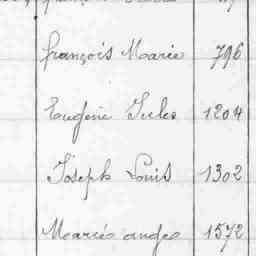 françois Marie 796
Eugène Jules 1204
Joseph Louis 1302
Marie ange 1572